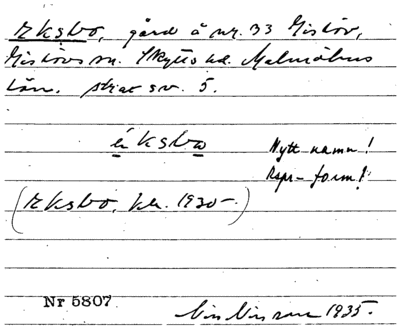 Eksbo, gård å nr. 33 Gislöv,
Gislövs sn. Skytts hd. Malmöhus
län. strax sv. 5.
èksbω
Nytt namn!
Repr-form!
(Eksbo, kh. 1930-.)
Nr 5807
1935.